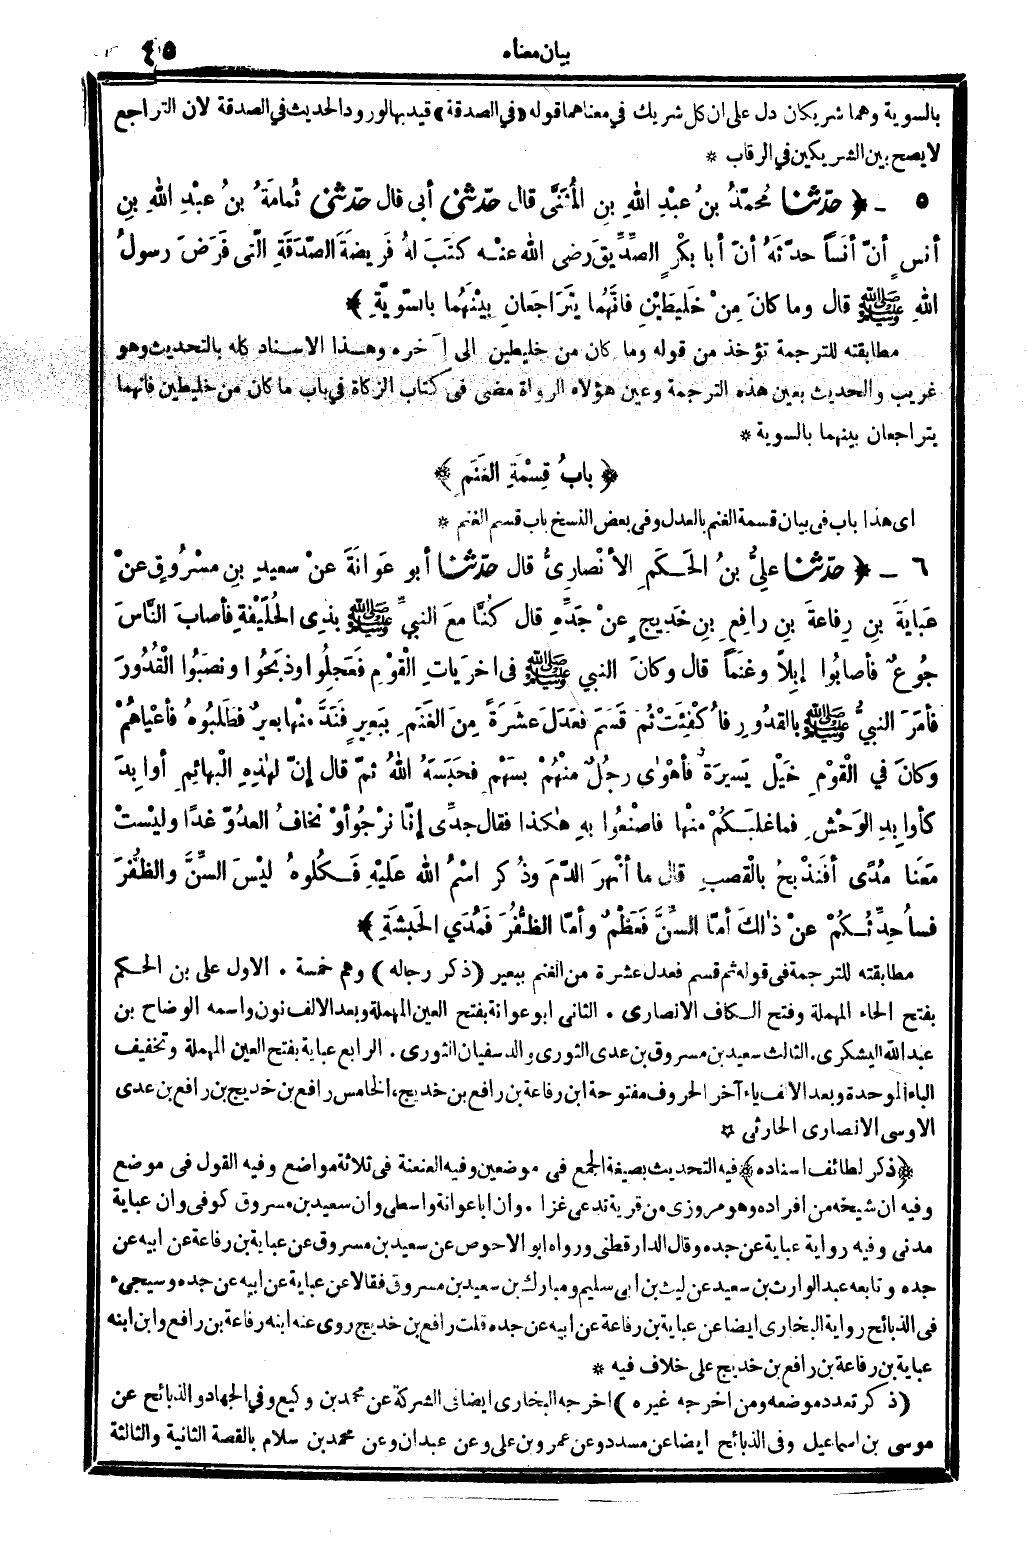 بيان معناه
٤٥
بالسوية وهما شريكان دل على ان كل شريك في معناهما قوله «في الصدقة» قيد بها لورود الحديث في الصدقة لان التراجع
لا يصح بين الشريكين في الرقاب *
٥ ـ ﴿ حدّثنا مُحمّدُ بنُ عبْدِ اللهِ بنِ الْمُثَنَّى قال حدّثني أبى قال حدّثني ثُمامَةُ بنُ عبْدِ اللهِ بنِ
أنسٍ أنّ أنَساً حدّثَهُ أنّ أبا بكْرٍ الصِّدِّيقَ رضى الله عنْه كتَبَ لهُ فَرِيضَةَ الصّدَقَةِ الّتى فَرَضَ رسولُ
اللهِ ﷺ قال وما كانَ مِنْ خَلِيطَيْنِ فانَّهُما يَتَرَاجَعانِ بيْنَهُما بالسّويّةِ ﴾
مطابقته للترجمة تؤخذ من قوله وما كان من خليطين الى آخره وهذا الاسناد كله بالتحديث وهو
غريب والحديث بعين هذه الترجمة وعين هؤلاء الرواة مضى في كتاب الزكاة في باب ما كان من خليطين فانهما
يتراجعان بينهما بالسوية *
﴿ بابُ قِسْمَةِ الغَنَمِ ﴾
اى هذا باب في بيان قسمة الغنم بالعدل وفي بعض النسخ باب قسم الغنم *
٦ ـ ﴿ حدّثنا عليُّ بنُ الحَكَمِ الأنْصارِىُّ قال حدّثنا أبو عَوانَةَ عنْ سعيدِ بنِ مسْرُوقٍ عنْ
عَبايَةَ بنِ رِفاعَةَ بنِ رافِعِ بنِ خَدِيجٍ عنْ جَدِّهِ قال كُنَّا معَ النبيِّ ﷺ بِذِى الحُلَيْفَةِ فأصابَ النَّاسَ
جُوعٌ فأصابُوا إبِلاً وغنَماً قال وكانَ النبي ﷺ في اخرَياتِ الْقوْمِ فَعَجِلُوا وذبَحُوا ونصَبُوا الْقُدُورَ
فأمَرَ النبيُّ ﷺ بالقدُورِ فأُكْفِئَتْ ثُمّ قَسَمَ فعَدَلَ عشَرَةً مِنَ الغَنَمِ بِبَعِيرٍ فَنَدَّ منْها بعيرٌ فطَلَبُوهُ فأعْياهُمْ
وكانَ في الْقوْمِ خَيْلٌ يَسيرَةٌ فأهْوٰى رجُلٌ منْهُمْ بسهْمٍ فحَبَسَهُ اللهُ ثمّ قال إنّ لهٰذِهِ الْبهائِمِ أوابِدَ
كأوابِدِ الوَحْشِ فما غلَبَكُمْ منْها فاصْنَعُوا بهِ هٰكذا فقال جدِّى إنّا نرْجُو أوْ نخافُ العدُوّ غدًا وليْستْ
مَعَنا مُدًى أفَنَذْبحُ بالْقصبِ قال ما أنْهرَ الدّمَ وذُكر اسْمُ الله عليْهِ فَكُلوهُ ليْسَ السِّنَّ والظّفُرَ
فسأُحدِّثُكُمْ عنْ ذٰلكَ أمّا السِّنُّ فَعَظْمٌ وأمّا الظّفُرُ فَمُدَي الحَبشَةِ ﴾
مطابقته للترجمة في قوله ثم قسم فعدل عشرة من الغنم ببعير (ذكر رجاله) وهم خمسة . الاول على بن الحكم
بفتح الحاء المهملة وفتح الكاف الانصارى . الثانى ابو عوانة بفتح العين المهملة وبعد الالف نون واسمه الوضاح بن
عبدالله اليشكرى . الثالث سعيد بن مسروق بن عدى الثورى والد سفيان الثورى . الرابع عباية بفتح العين المهملة وتخفيف
الباء الموحدة وبعد الالف ياء آخر الحروف مفتوحة ابن رفاعة بن رافع بن خديج . الخامس رافع بن خديج بن رافع بن عدى
الاوسى الانصارى الحارثى *
﴿ذكر لطائف اسناده﴾ فيه التحديث بصيغة الجمع في موضعين وفيه العنعنة في ثلاثة مواضع وفيه القول في موضع
وفيه ان شيخه من افراده وهو مروزى من قرية تدعى غزا . وان ابا عوانة واسطى وان سعيد بن مسروق كوفى وان عباية
مدنى وفيه رواية عباية عن جده وقال الدارقطنى ورواه ابو الاحوص عن سعيد بن مسروق عن عباية بن رفاعة عن ابيه عن
جده وتابعه عبد الوارث بن سعيد عن ليث بن ابى سليم ومبارك بن سعيد بن مسروق فقالا عن عباية عن ابيه عن جده وسيجىء
في الذبائح رواية البخارى ايضا عن عباية بن رفاعة عن ابيه عن جده قلت رافع بن خديج روى عنه ابنه رفاعة بن رافع وابن ابنه
عباية بن رفاعة بن رافع بن خديج على خلاف فيه *
(ذكر تعدد موضعه ومن اخرجه غيره) اخرجه البخارى ايضا في الشركة عن محمد بن وكيع وفي الجهاد والذبائح عن
موسى بن اسماعيل وفى الذبائح ايضا عن مسدد وعن عمرو بن على وعن عبدان وعن محمد بن سلام بالقصة الثانية والثالثة